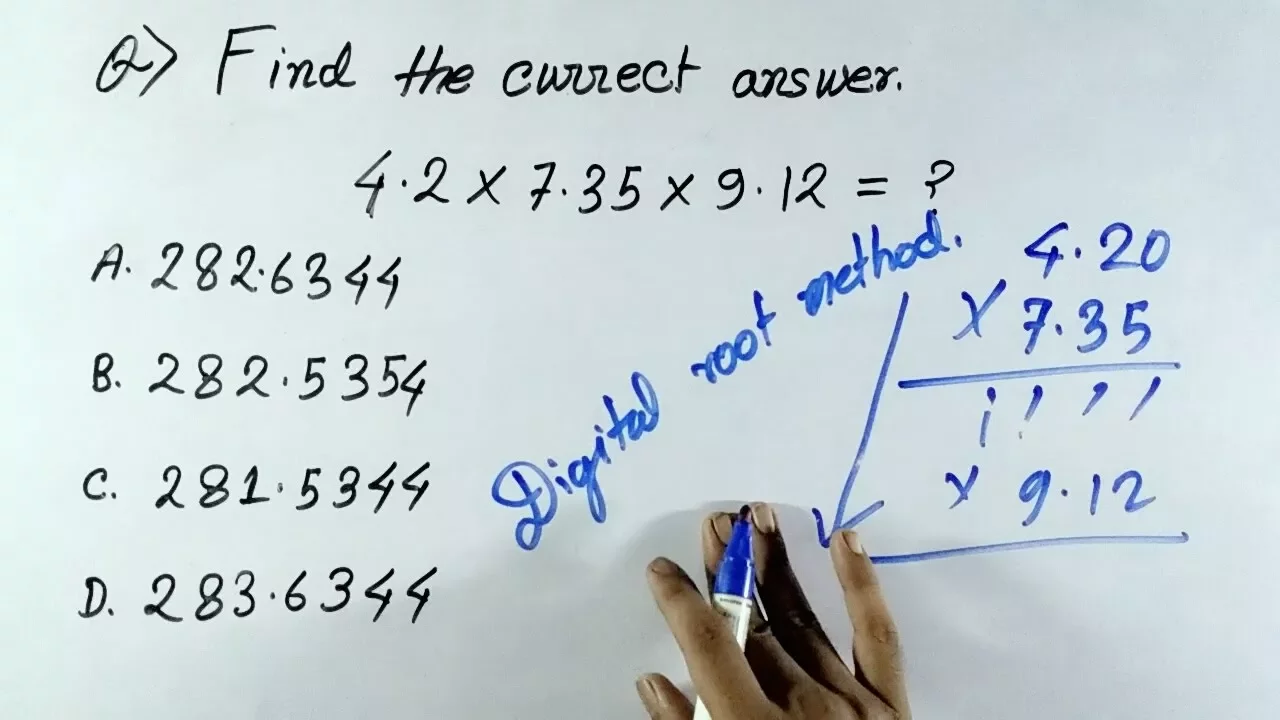 Q> Find the currect answer.
4.2 x 7.35 x 9.12 = ?
A. 282.6344
B. 282.5354
C. 281.5344
D. 283.6344
Digital root method.
4.20
x 7.35
x 9.12